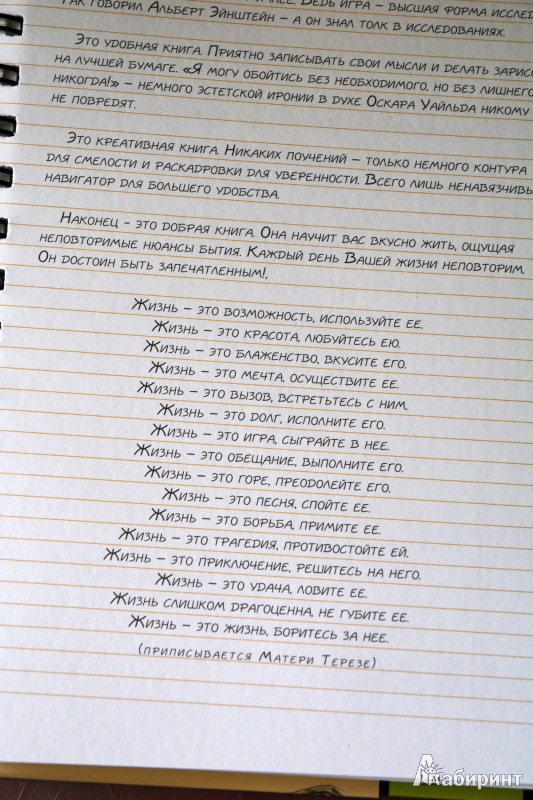 так говорил Альберт Эйнштейн – а он знал толк в исследованиях.
Это удобная книга. Приятно записывать свои мысли и делать
на лучшей бумаге. «Я могу обойтись без необходимого, но без лишнего
никогда!» – немного эстетской иронии в духе Оскара Уайльда никому
не повредят.
Это креативная книга. Никаких поучений – только немного контура
для смелости и раскадровки для уверенности. Всего лишь
навигатор для большего удобства.
Наконец - это добрая книга. Она научит вас вкусно жить, ощущая
неповторимые нюансы бытия. Каждый день Вашей жизни неповторим.
Он достоин быть запечатленным!.
Жизнь – это возможность, используйте ее.
Жизнь – это красота, любуйтесь ею.
Жизнь – это блаженство, вкусите его.
Жизнь – это мечта, осуществите ее.
Жизнь – это вызов, встретьтесь с ним.
Жизнь – это долг, исполните его.
Жизнь – это игра, сыграйте в нее.
Жизнь – это обещание, выполните его.
Жизнь – это горе, преодолейте его.
Жизнь – это песня, спойте ее.
Жизнь – это борьба, примите ее.
Жизнь – это трагедия, противостойте ей.
Жизнь – это приключение, решитесь на него.
Жизнь – это удача, ловите ее.
Жизнь слишком драгоценна, не губите ее.
Жизнь – это жизнь, боритесь за нее.
(приписывается Матери Терезе)
Лабиринт